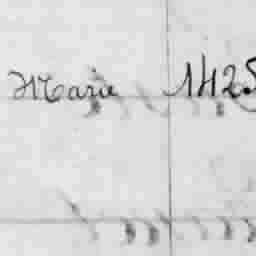 Marie 1425